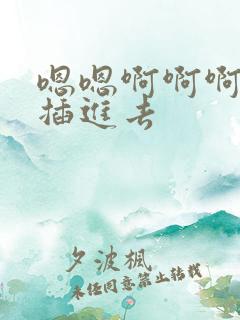 嗯嗯啊啊啊
插进去
夕波枫
未经同意禁止转载